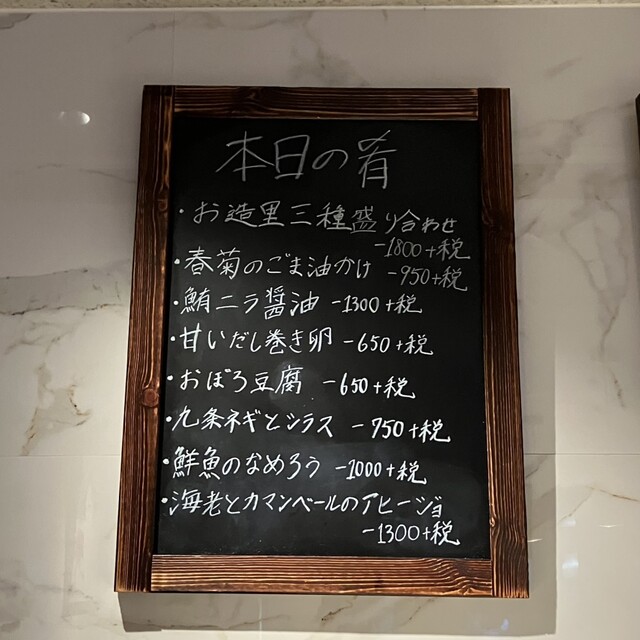 本日の肴
・お造里三種盛り合わせ
-1800+税
・春菊のごま油かけ -950+税
・鮪ニラ醤油 -1300+税
・甘いだし巻き卵 -650+税
・おぼろ豆腐 -650+税
・九条ネギとシラス -750+税
・鮮魚のなめろう -1000+税
・海老とカマンベールのアヒージョ
-1300+税